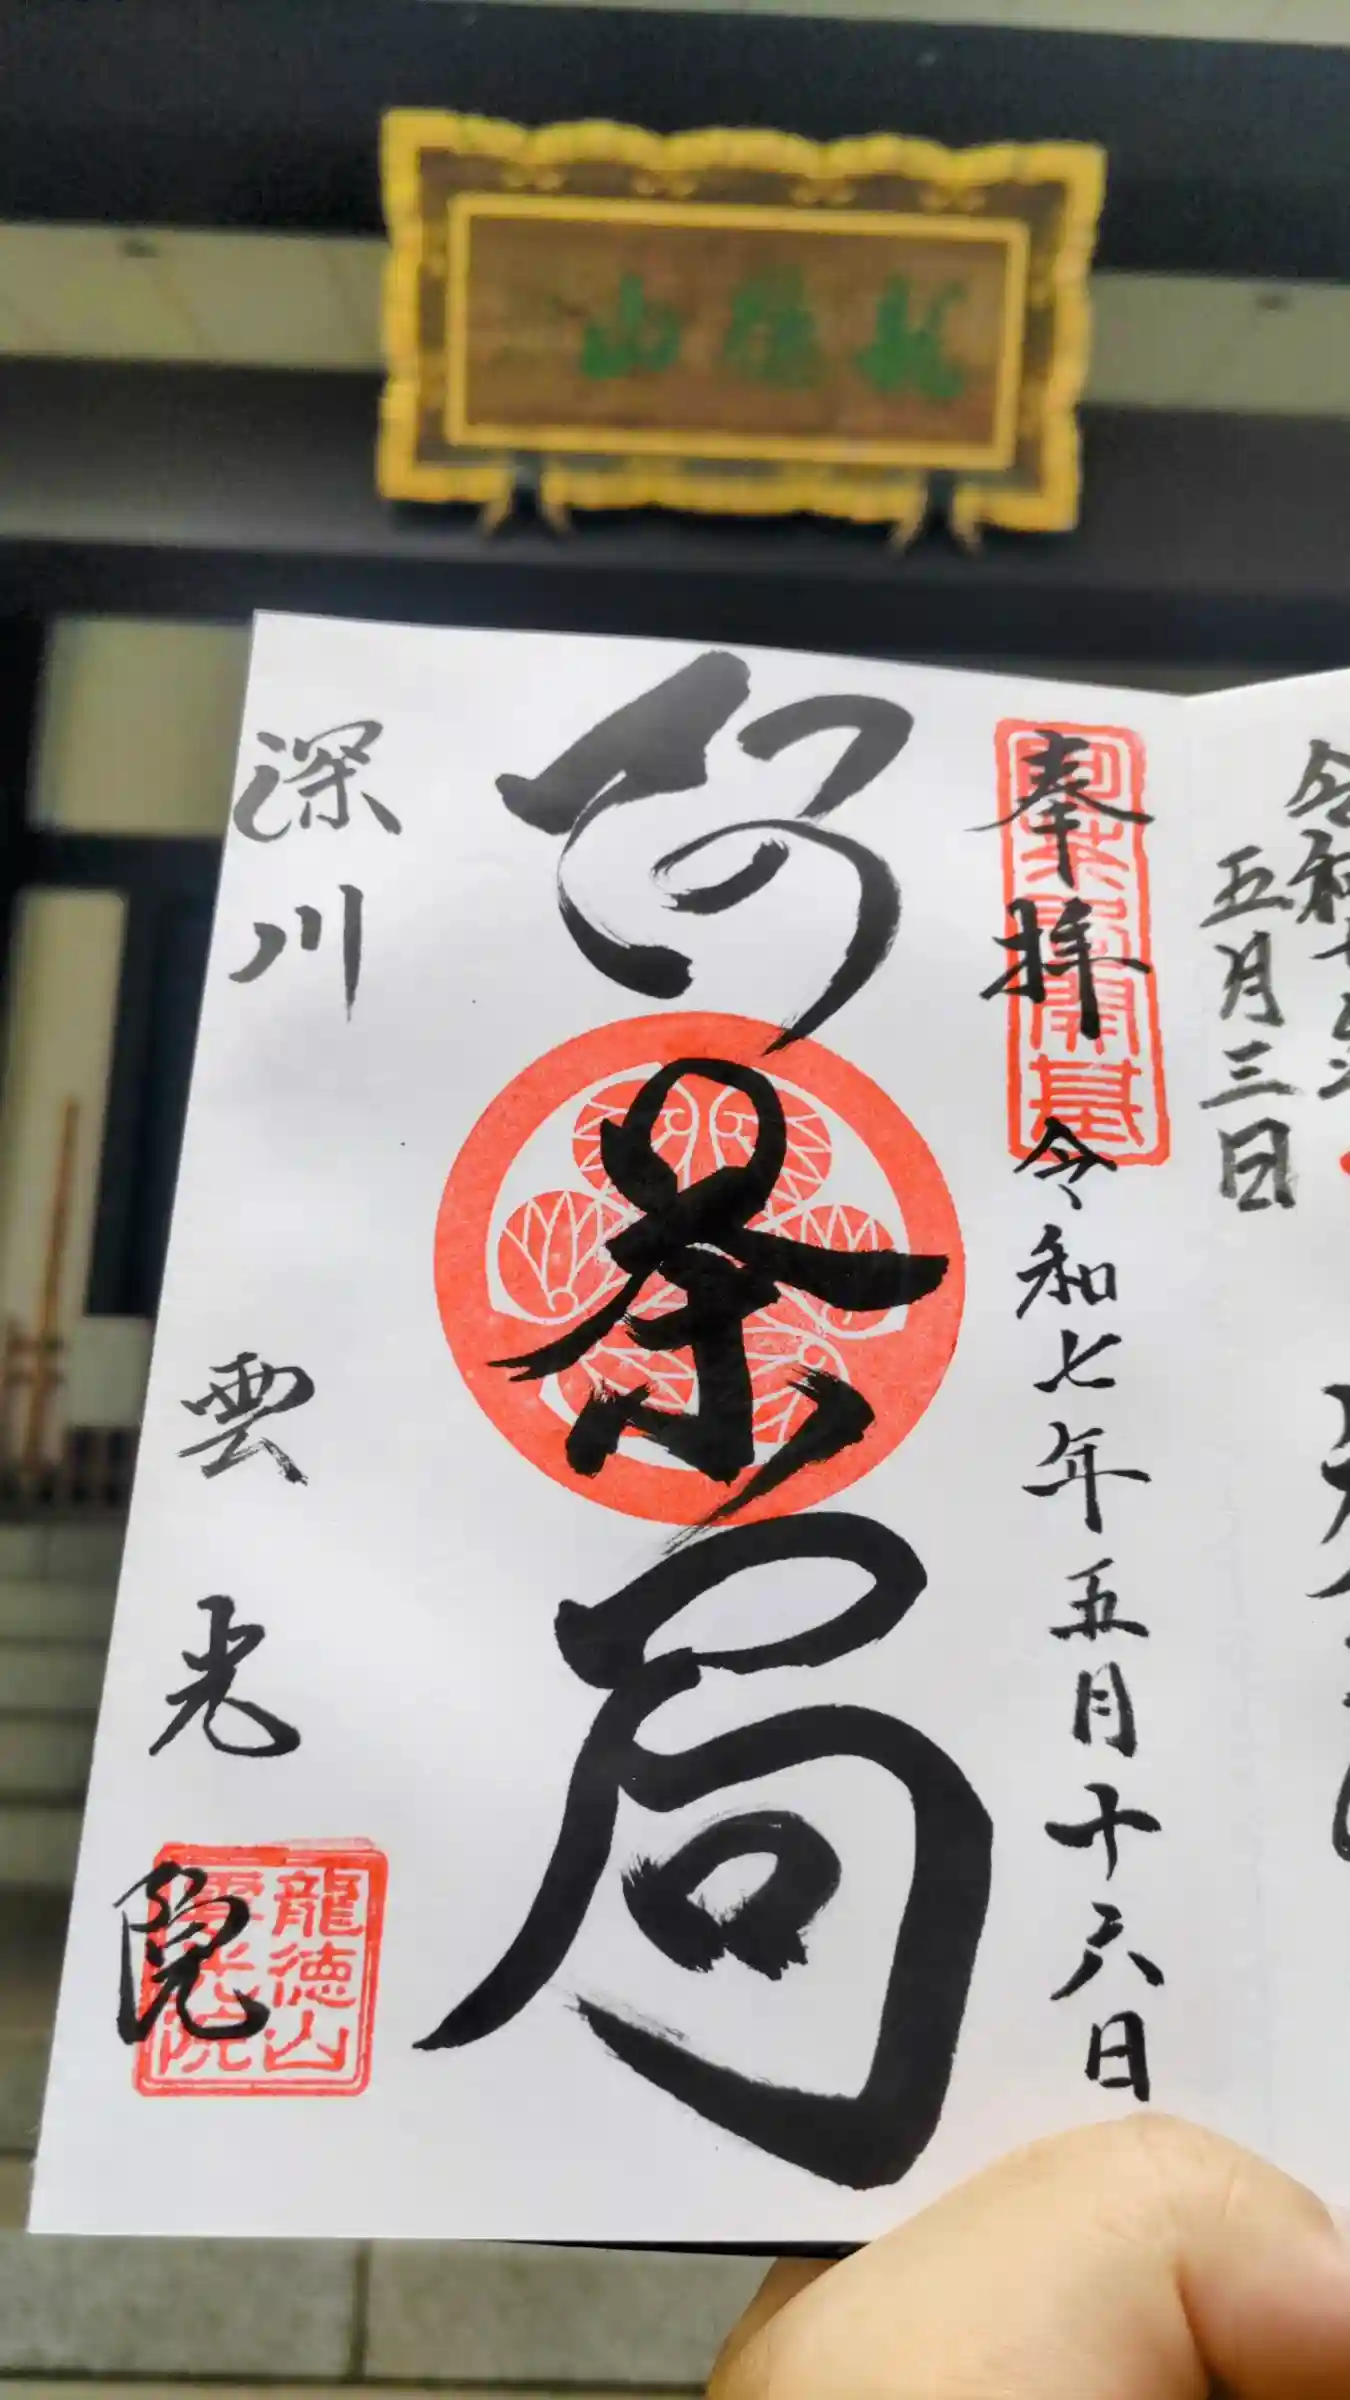 龍徳山
令和七年
五月三日
奉拝 令和七年五月十六日
阿茶局開基
阿茶局
深川 雲光院
龍徳山
雲光院